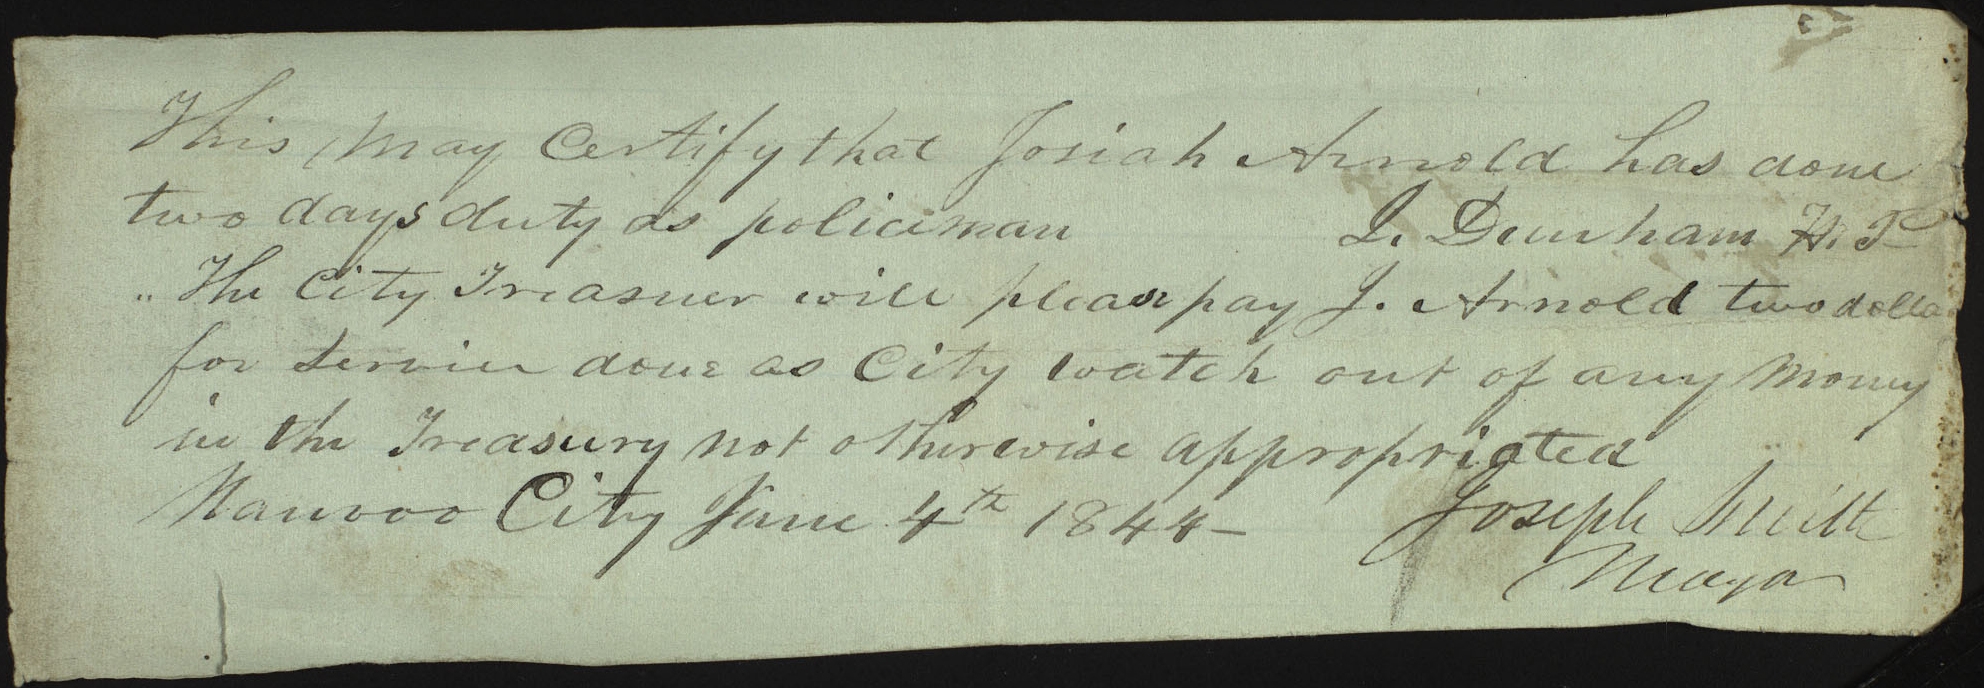 This may Certify that Josiah Arnold has done
two days duty as policeman J. Dunham H. P.
" The City Treasuer will pleas pay J. Arnold two dolla
for service done as City watch out of any money
in the Treasury not otherwise appropriated
Nauvoo City June 4th 1844-
Joseph Smith
Mayor